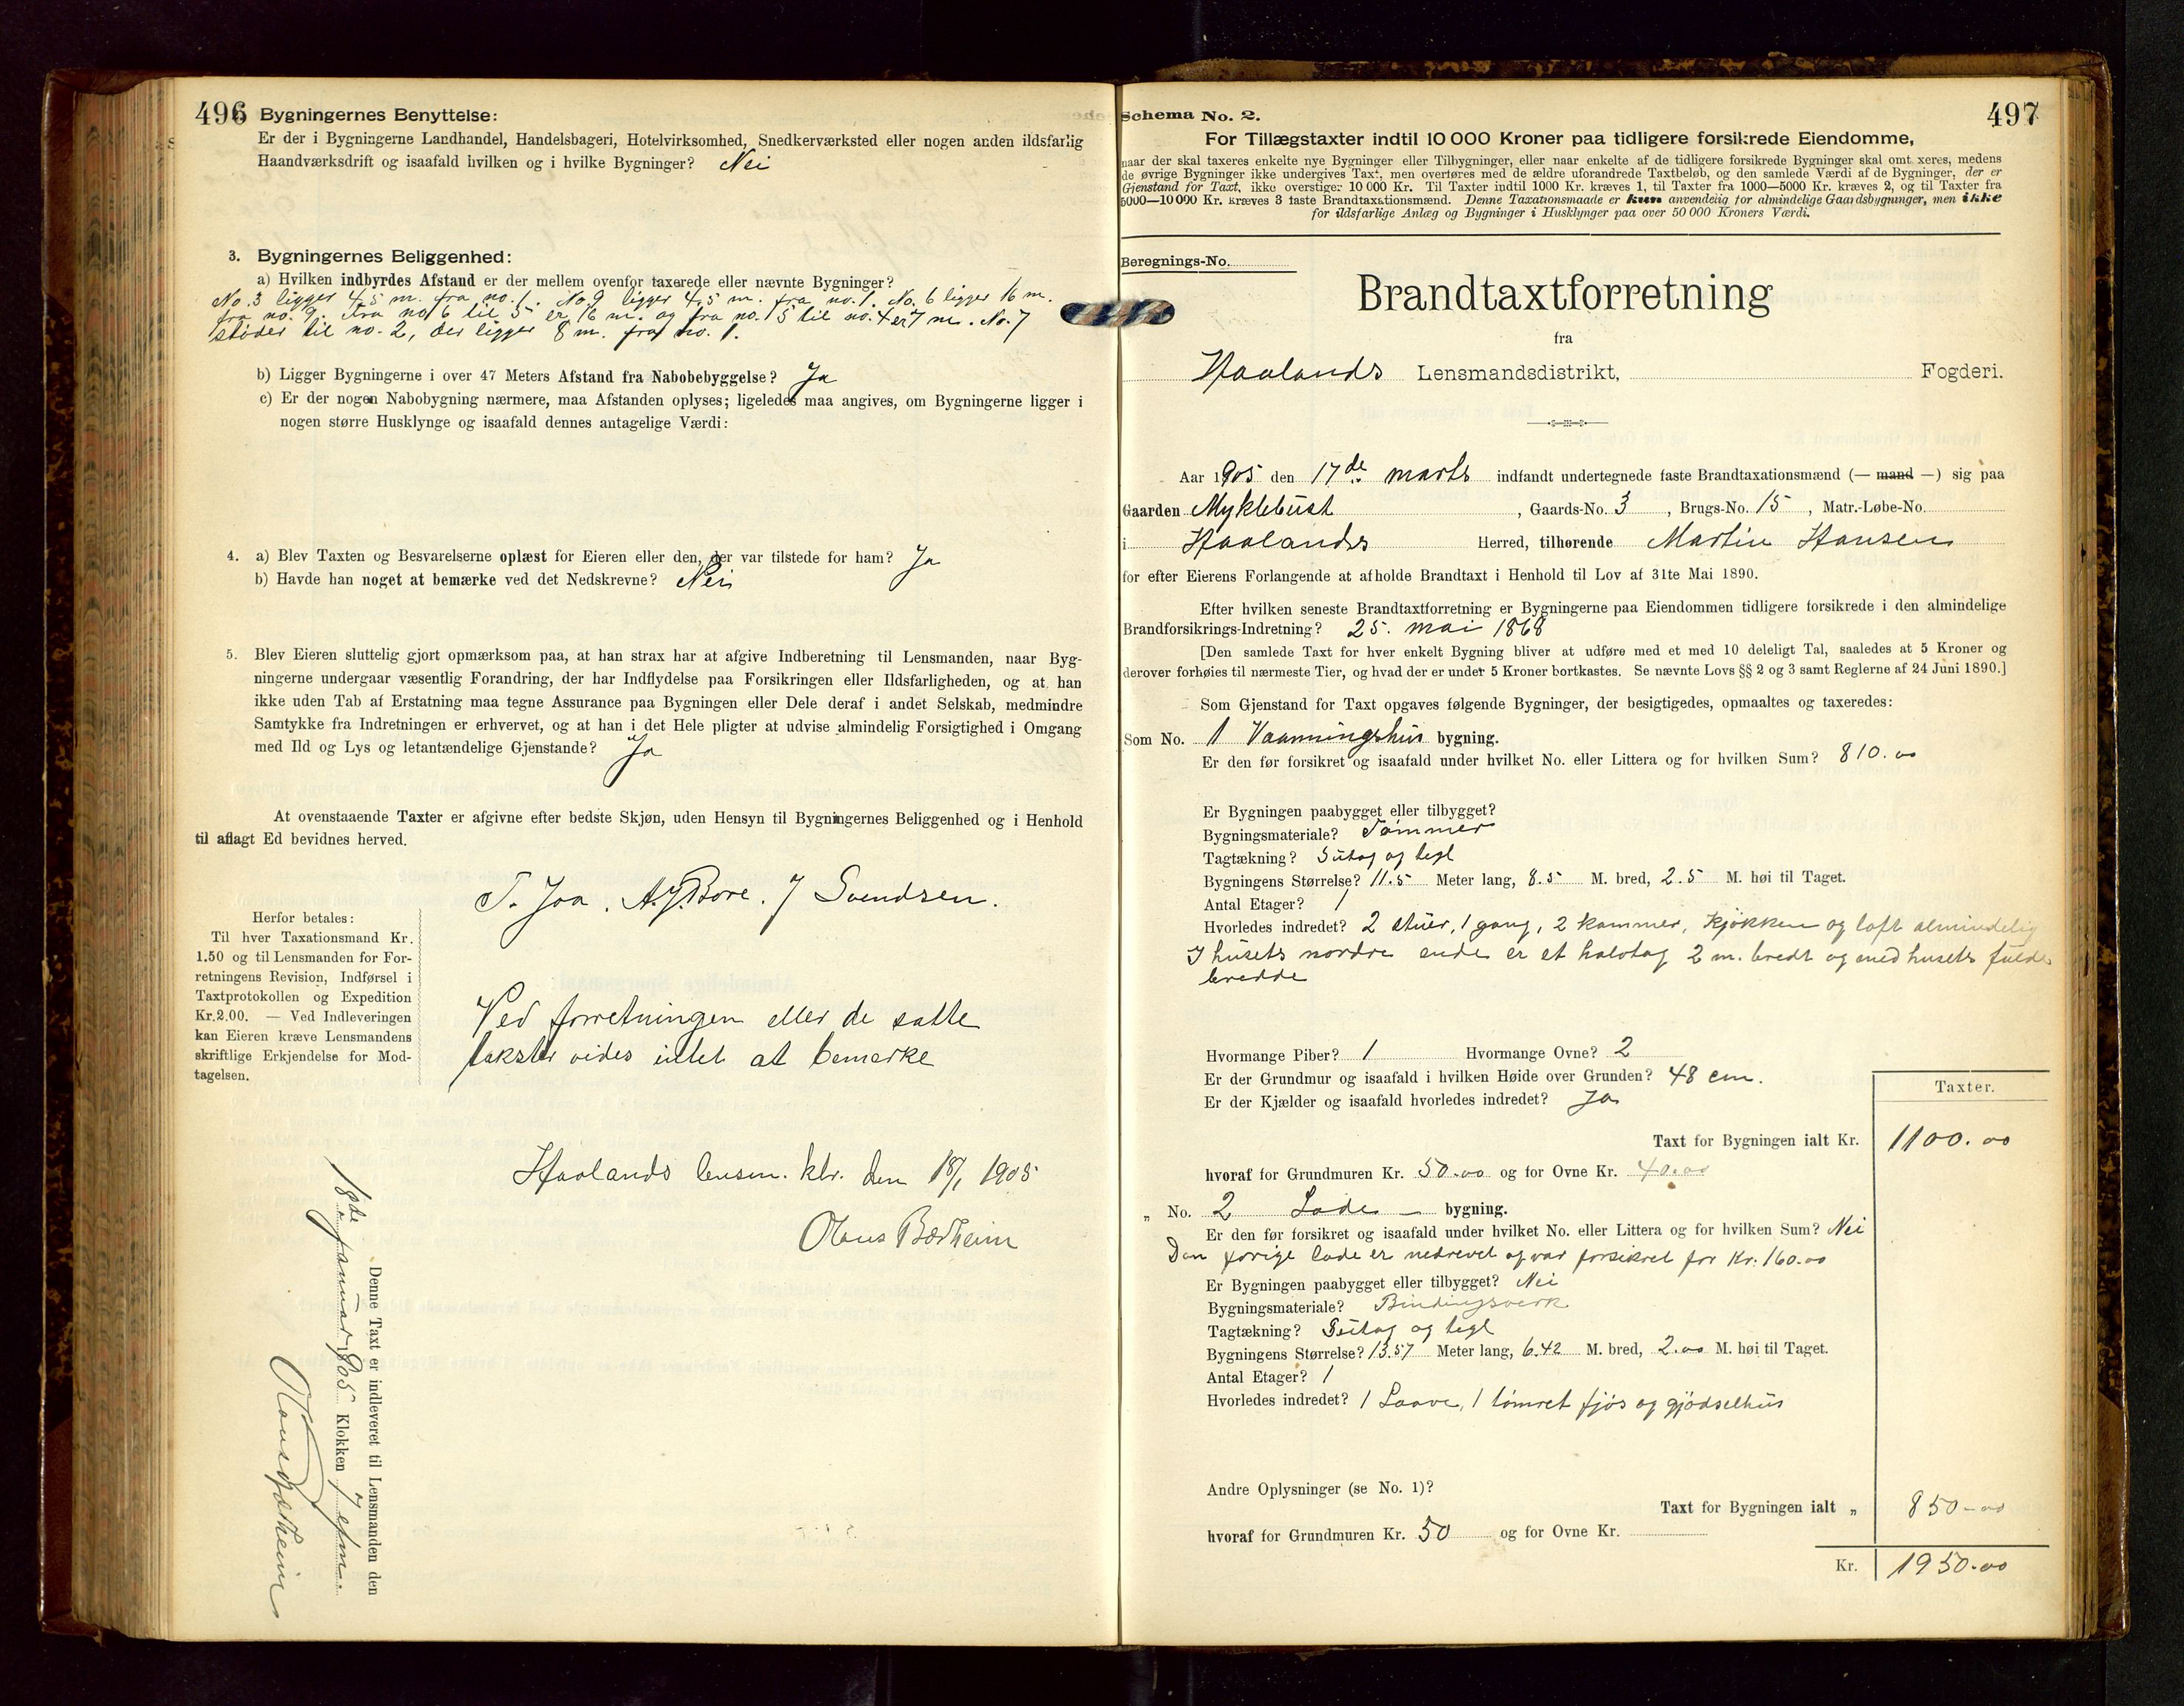 496 Bygningernes Benyttelse:
Er der i Bygningerne Landhandel, Handelsbageri, Hotelvirksomhed, Snedkerværksted eller nogen anden ildsfarlig
Haandværksdrift og isaafald hvilken og i hvilke Bygninger? Nei
3. Bygningernes Beliggenhed:
a) Hvilken indbyrdes Afstand er der mellem ovenfor taxerede eller nævnte Bygninger?
No. 3 ligger 4,5 m. fra no. 1. No. 9 ligger 4,5 m. fra no. 1. No. 6 ligger 16 m.
fra no. 9. Fra no. 6 til 5 er 16 m. og fra no. 5 til no. 4 er 7 m. No. 7
støder til no. 2, der ligger 8 m. fra no. 1.
b) Ligger Bygningerne i over 47 Meters Afstand fra Nabobebyggelse? Ja
c) Er der nogen Nabobygning nærmere, maa Afstanden oplyses; ligeledes maa angives, om Bygningerne ligger i
nogen større Husklynge og isaafald dennes antagelige Værdi:
4. a) Blev Taxten og Besvarelserne oplæst for Eieren eller den, der var tilstede for ham? Ja
b) Havde han noget at bemærke ved det Nedskrevne? Nei
5. Blev Eieren sluttelig gjort opmærksom paa, at han strax har at afgive Indberetning til Lensmanden, naar Byg-
ningerne undergaar væsentlig Forandring, der har Indflydelse paa Forsikringen eller Ildsfarligheden, og at han
ikke uden Tab af Erstatning maa tegne Assurance paa Bygningen eller Dele deraf i andet Selskab, medmindre
Samtykke fra Indretningen er erhvervet, og at han i det Hele pligter at udvise almindelig Forsigtighed i Omgang
med Ild og Lys og letantændelige Gjenstande? Ja
At ovenstaaende Taxter er afgivne efter bedste Skjøn, uden Hensyn til Bygningernes Beliggenhed og i Henhold
til aflagt Ed bevidnes herved.
T. Joa. A. J. Bore. J Svendsen.
Herfor betales:
Til hver Taxationsmand Kr.
1.50 og til Lensmanden for For-
retningens Revision, Indførsel i
Taxtprotokollen og Expedition
Kr. 2.00. — Ved Indleveringen
kan Eieren kræve Lensmandens
skriftlige Erkjendelse for Mod-
tagelsen.
Ved forretningen eller de satte
takster vides intet at bemærke
Haalands lensm. ktr. den 18/1 1905
Olaus Bærheim
Denne Taxt er indleveret til Lensmanden den
18de januar 1905 Klokken 7 efm.
Olaus Bærheim
Schema No. 2. 497
For Tillægstaxter indtil 10 000 Kroner paa tidligere forsikrede Eiendomme,
naar der skal taxeres enkelte nye Bygninger eller Tilbygninger, eller naar enkelte af de tidligere forsikrede Bygninger skal omt xeres, medens
de øvrige Bygninger ikke undergives Taxt, men overføres med de ældre uforandrede Taxtbeløb, og den samlede Værdi af de Bygninger, der er
Gjenstand for Taxt, ikke overstiger 10 000 Kr. Til Taxter indtil 1000 Kr. kræves 1, til Taxter fra 1000—5000 Kr. kræves 2, og til Taxter fra
5000—10 000 Kr. kræves 3 faste Brandtaxationsmænd. Denne Taxationsmaade er kun anvendelig for almindelige Gaardsbygninger, men ikke
for ildsfarlige Anlæg og Bygninger i Husklynger paa over 50 000 Kroners Værdi.
Beregnings-No.
Brandtaxtforretning
fra
Haalands Lensmandsdistrikt, Fogderi.
Aar 1905 den 17de marts indfandt undertegnede faste Brandtaxationsmænd (— mand —) sig paa
Gaarden Myklebust, Gaards-No. 3, Brugs-No. 15, Matr.-Løbe-No.
i Haalands Herred, tilhørende Martin Hansen
for efter Eierens Forlangende at afholde Brandtaxt i Henhold til Lov af 31te Mai 1890.
Efter hvilken seneste Brandtaxtforretning er Bygningerne paa Eiendommen tidligere forsikrede i den almindelige
Brandforsikrings-Indretning? 25. mai 1868
[Den samlede Taxt for hver enkelt Bygning bliver at udføre med et med 10 deleligt Tal, saaledes at 5 Kroner og
derover forhøies til nærmeste Tier, og hvad der er under 5 Kroner bortkastes. Se nævnte Lovs §§ 2 og 3 samt Reglerne af 24 Juni 1890.]
Som Gjenstand for Taxt opgaves følgende Bygninger, der besigtigedes, opmaaltes og taxeredes:
Som No. 1 Vaaningshus bygning.
Er den før forsikret og isaafald under hvilket No. eller Littera og for hvilken Sum? 810.00
Er Bygningen paabygget eller tilbygget?
Bygningsmateriale? Tømmer
Tagtækning? Sutag og tegl
Bygningens Størrelse? 11.5 Meter lang, 8.5 M. bred, 2.5 M. høi til Taget.
Antal Etager? 1
Hvorledes indredet? 2 stuer, 1 gang, 2 kammer, kjøkken og loft almindelig
I husets nordre ende er et halvtag 2 m. bredt og med husets fulde
bredde
Hvormange Piber? 1 Hvormange Ovne? 2
Er der Grundmur og isaafald i hvilken Høide over Grunden? 48 cm.
Er der Kjælder og isaafald hvorledes indredet? Ja
Taxter.
Taxt for Bygningen ialt Kr. 1100.00
hvoraf for Grundmuren Kr. 50.00 og for Ovne Kr. 40.00
„ No. 2 Lade — bygning.
Er den før forsikret og isaafald under hvilket No. eller Littera og for hvilken Sum? Nei
Den forige lade er nedrevet og var forsikret for Kr. 160.00
Er Bygningen paabygget eller tilbygget? Nei
Bygningsmateriale? Bindingsverk
Tagtækning? Sutag og tegl
Bygningens Størrelse? 13.57 Meter lang, 6.42 M. bred, 2.00 M. høi til Taget.
Antal Etager? 1
Hvorledes indredet? 1 Laave, 1 tømret fjøs og gjødselhus
Andre Oplysninger (se No. 1)?
Taxt for Bygningen ialt „ 850-00
hvoraf for Grundmuren Kr. 50 og for Ovne Kr.
Kr. 1950.00